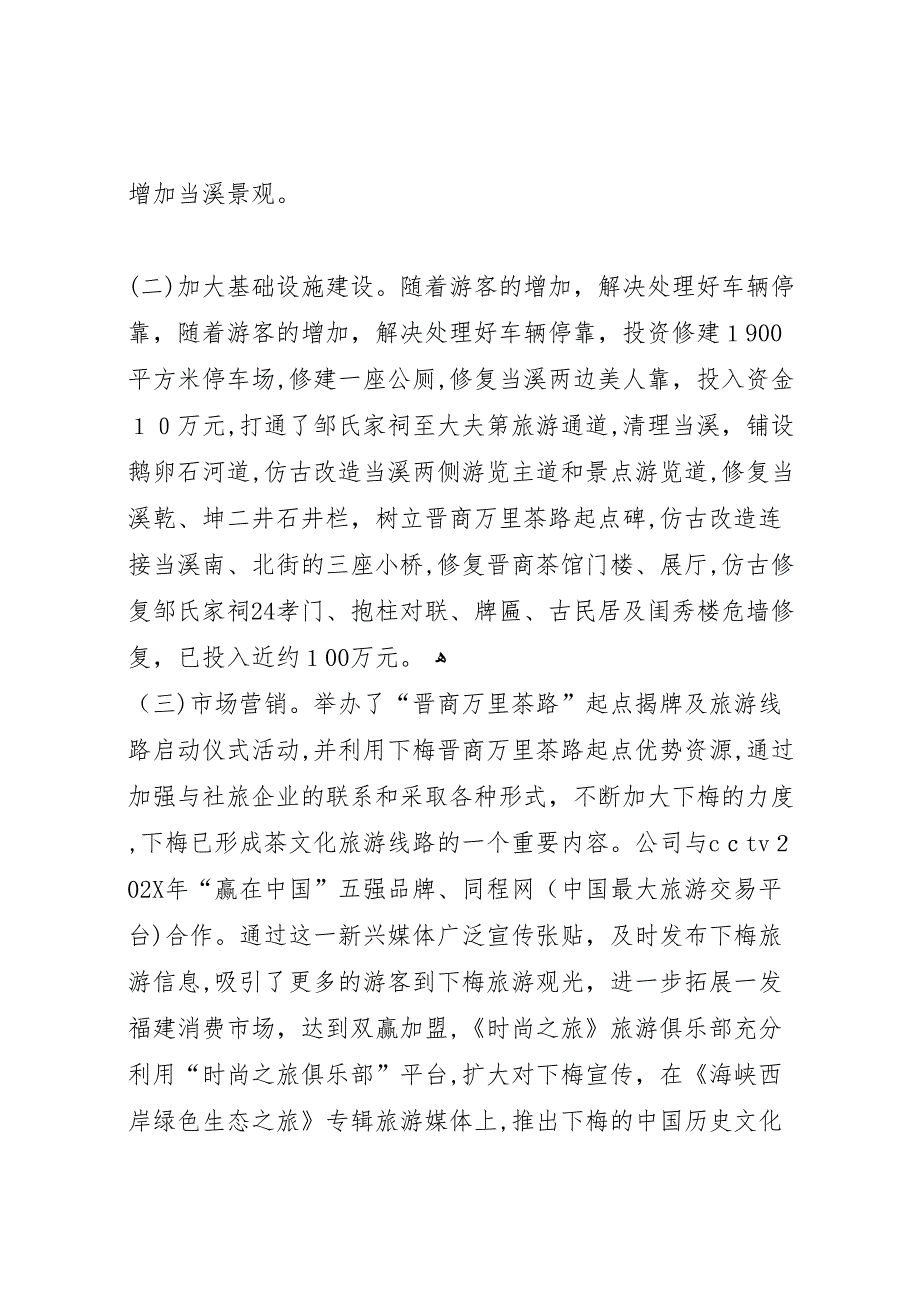 增加当溪景观。
(二)加大基础设施建设。随着游客的增加，解决处理好车辆停
靠，随着游客的增加，解决处理好车辆停靠，投资修建１900
平方米停车场,修建一座公厕,修复当溪两边美人靠，投入资金
１０万元,打通了邹氏家祠至大夫第旅游通道,清理当溪，铺设
鹅卵石河道,仿古改造当溪两侧游览主道和景点游览道,修复当
溪乾、坤二井石井栏，树立晋商万里茶路起点碑,仿古改造连
接当溪南、北街的三座小桥,修复晋商茶馆门楼、展厅,仿古修
复邹氏家祠24孝门、抱柱对联、牌匾、古民居及闺秀楼危墙修
复，已投入近约１00万元。 ﻫ
（三)市场营销。举办了“晋商万里茶路”起点揭牌及旅游线
路启动仪式活动,并利用下梅晋商万里茶路起点优势资源,通过
加强与社旅企业的联系和采取各种形式，不断加大下梅的力度
,下梅已形成茶文化旅游线路的一个重要内容。公司与cｃtv２
02X年“赢在中国”五强品牌、同程网（中国最大旅游交易平
台)合作。通过这一新兴媒体广泛宣传张贴，及时发布下梅旅
游信息,吸引了更多的游客到下梅旅游观光，进一步拓展一发
福建消费市场，达到双赢加盟,《时尚之旅》旅游俱乐部充分
利用“时尚之旅俱乐部”平台,扩大对下梅宣传，在《海峡西
岸绿色生态之旅》专辑旅游媒体上,推出下梅的中国历史文化